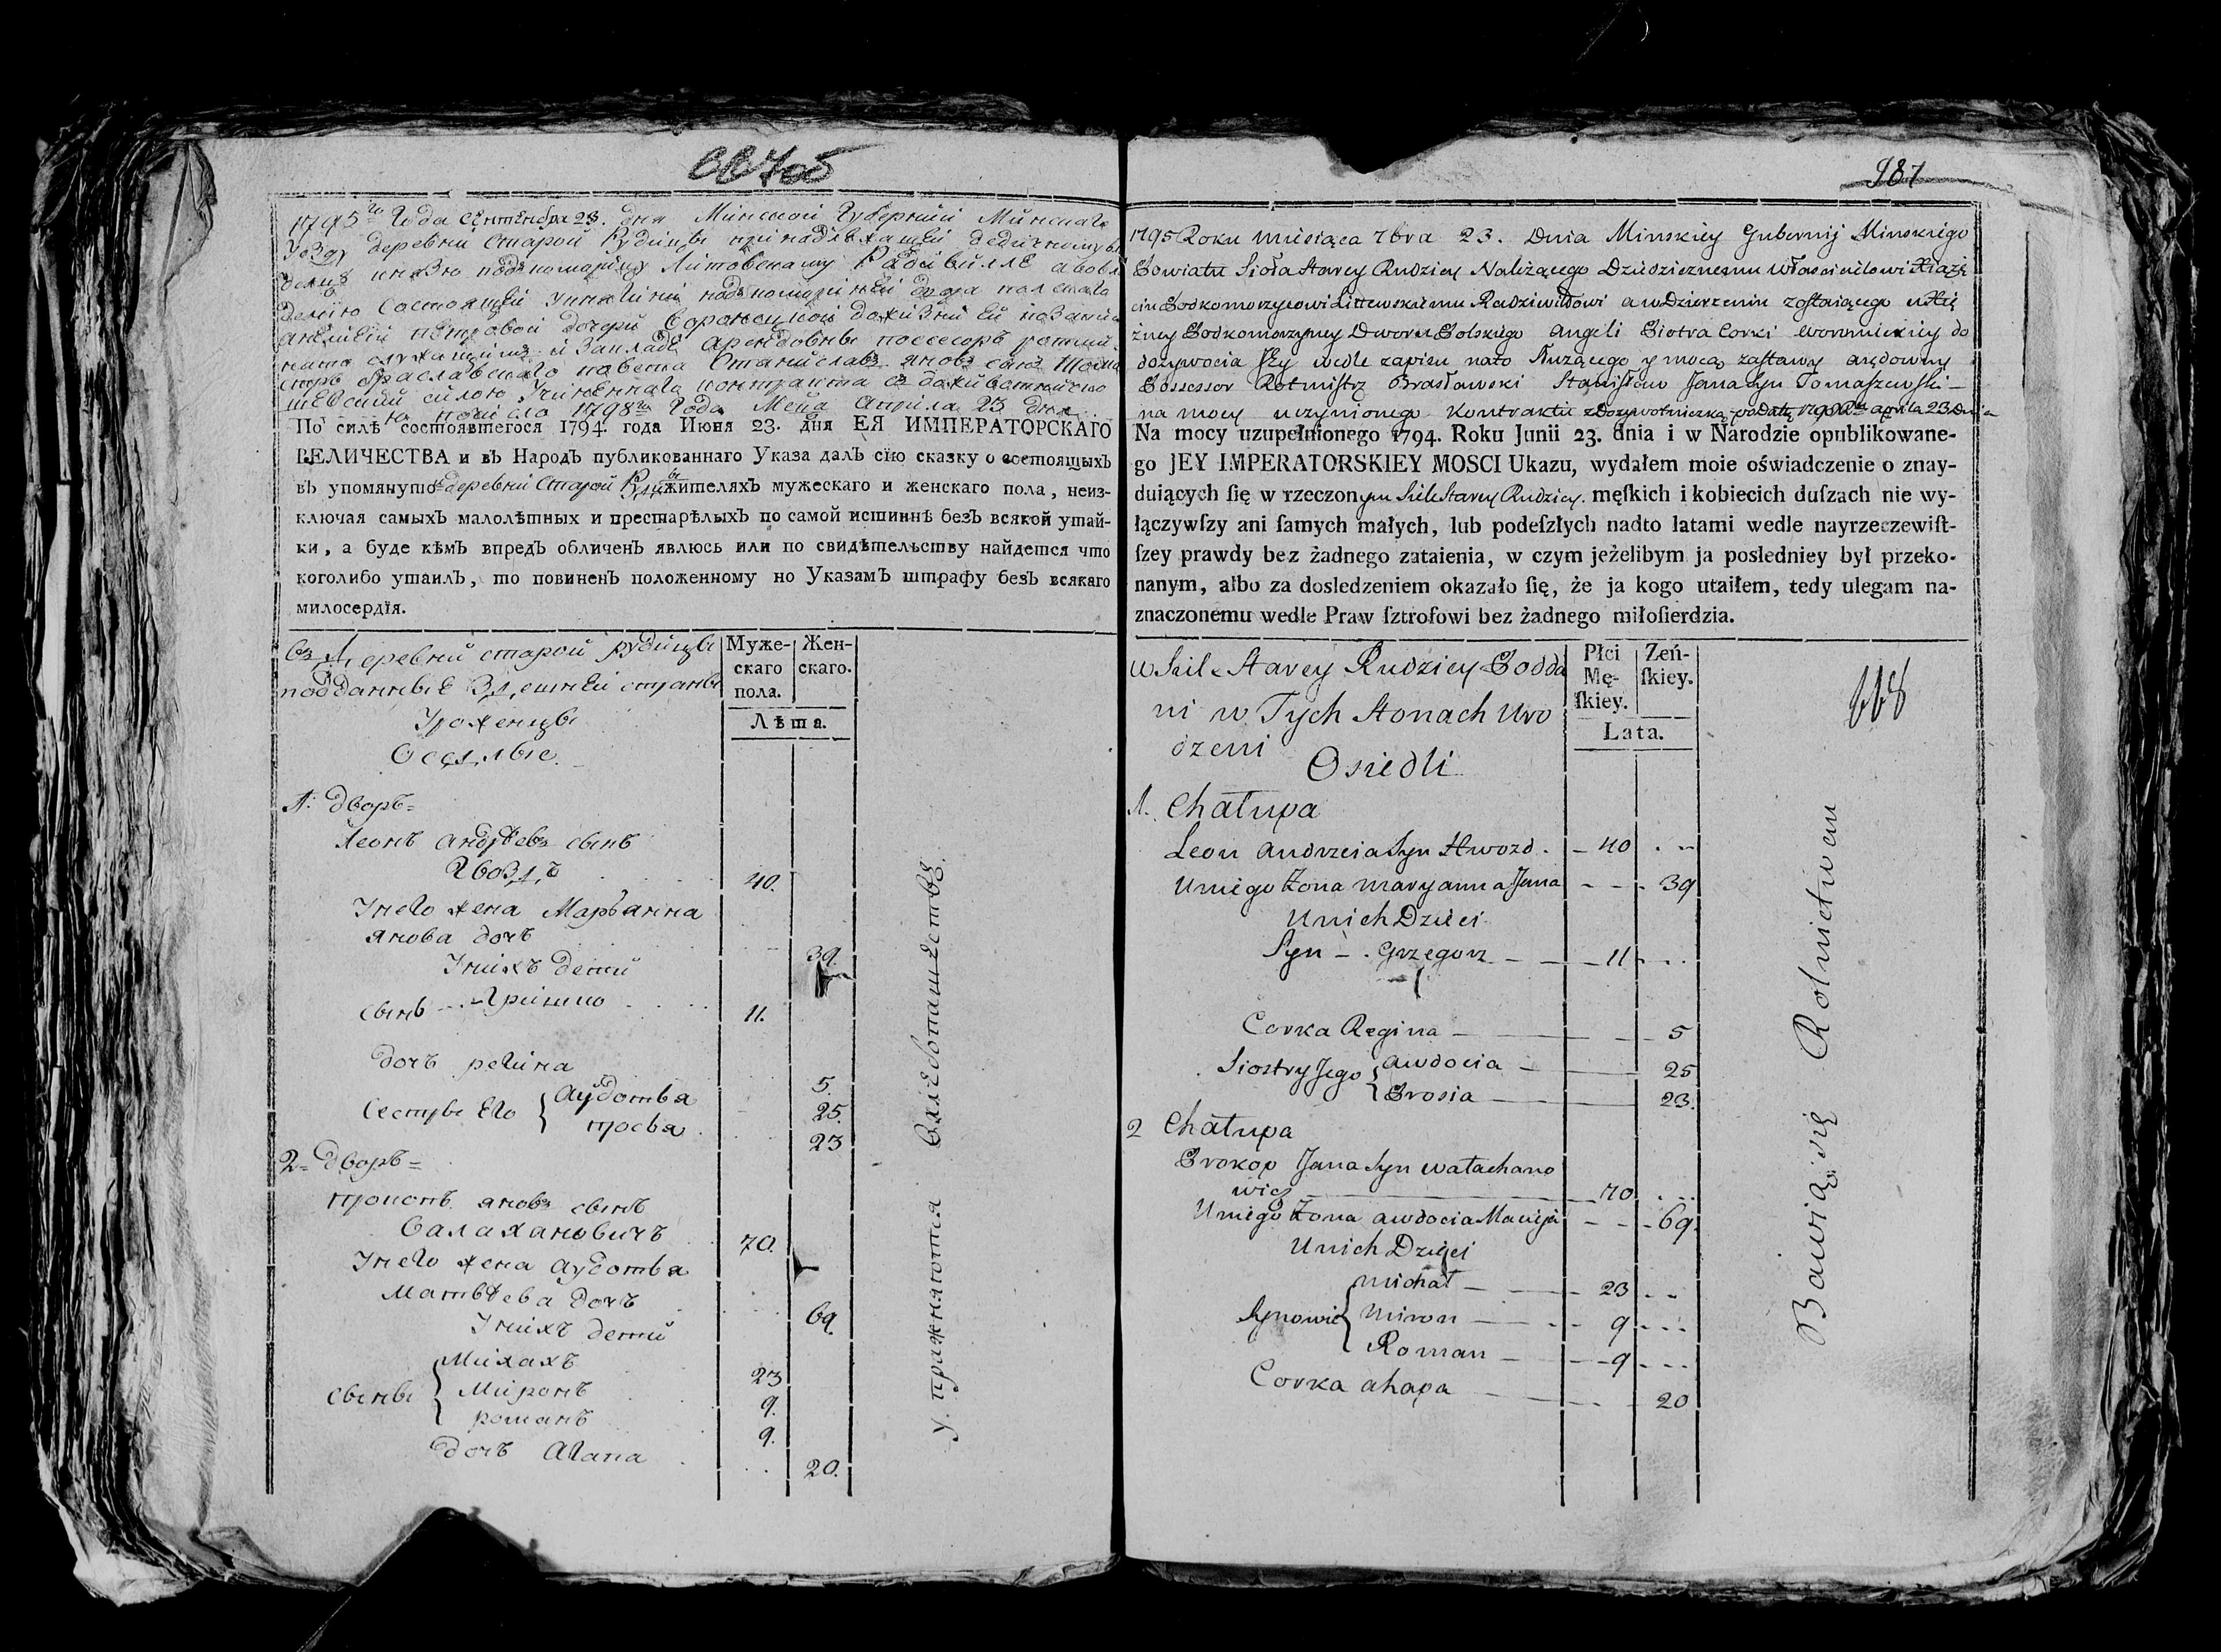 1795го Года Сентебра 23. дня Минской Губерний Минскаго
Уезду деревни Старой Рудицы принадлежащей дедичному вла
князю подкоморему Литовскому Радивилле авовла
дению состоящей
Ангелией Петровой дочери
арендовны поссесоръ ротми
стръ Браславскаго повета Станиславъ Яновъ сынъ Тома
шевский силою Учиненнаго контракта
1798го Года Апрıла 23 дня
По силѣ состоявшегося 1794. года Июня 23. дня ЕЯ ИМПЕРАТОРСКАГО
ВЕЛИЧЕСТВА и въ Народъ публикованнаго Указа далъ сїю сказку о состоящыхъ
въ упомянутой деревни Старой Рудицы жителяхъ мужескаго и женскаго пола, неиз-
ключая самыхъ малолѣтных и престарѣлыхъ по самой истиннѣ безъ всякой утай-
ки, а буде кѣмъ впредъ обличенъ явлюсь или по свидѣтельству найдется что
коголибо утаилъ, то повиненъ положенному но Указамъ штрафу безъ всякаго
милосердїя.
въ Деревни старой рудицы
подданные здешней страны
Уроженцы
Оседлые
Муже-
скаго
пола.
Жен-
скаго.
Лѣта.
1: дворъ=
Леонъ андреевъ сынъ
Гвоздъ 40.
Унего жена Марьянна
янова дочь 39.
Унихъ дети
сынъ Гришко 11.
дочь регина 5.
Сестры Его { аудотья 25.
прося 23
2= дворъ=
прокопъ яновъ сынъ
Валахановичъ 70.
Унего жена аудотья
Матвеева дочь 69.
Унихъ дети
сыны { Михалъ 23
Миронъ 9.
романъ 9.
дочъ Агапа 20.
Упражняются Хлебопашествъ
987
1795 Roku Miesiąca 7bra 23. Dnia Minskiey Gubernij Minskiego
Powiatu Sioła Starey Rudzicy Należącego Dziedzicznemu Włascicielowi Xiążę
ciu Podkomorzycowi Littewskiemu Radziwiłłowi a w Dzierżeniu zostaiącego u Xię
żney Podkomorzyney Dworu Polskiego Angeli Piotra Corki Woronieckiey do
dożywocia Jey wedle zapisu nato służącego y mocą zastawy arędowny
Possessor Rotmistrz Brasławski Stanisław Jana Syn Tomaszewski –
na mocy uczynionego Kontraktu z Dożywotniczką pod datą 1798 Ru aprila 23 Dnia
Na mocy uzupełnionego 1794. Roku Junii 23. dnia i w Narodzie opublikowane-
go JEY IMPERATORSKIEY MOSCI Ukazu, wydałem moie oświadczenie o znay-
duiących ſię w rzeczonym Siele Starey Rudzicy. męſkich i kobiecich duſzach nie wy-
łączywſzy ani ſamych małych, lub podeſzłych nadto latami wedle nayrzeczewiſt-
ſzey prawdy bez żadnego zataienia, w czym jeżelibym ja posledniey był przeko-
nanym, albo za dosledzeniem okazało ſię, że ja kogo utaiłem, tedy ulegam na-
znaczonemu wedle Praw ſztrofowi bez żadnego miłoſierdzia.
w Siele Starey Rudzicy Podda
ni w Tych Stonach Uro
dzeni
Osiedli
Płci
Mę-
ſkiey.
Zeń-
ſkiey.
Lata.
1. Chałupa
Leon Andrzeia Syn Hwozd. – 40
Uniego Zona Maryanna Jana – 39
Unich Dzieci
Syn – Grzegorz – 11
Corka Regina – 5
Siostry Jego { Awdocia – 25
Prosia – 23.
2 Chałupa
Prokop Jana Syn Wałachano
wicz – 70
Uniego Zona Awdocia Macieja – 69.
Unich Dzieci
Synowie { Michał – 23
Miron – 9
Roman – 9
Corka Ahapa – 20
Bawią się Rolnictwem
668